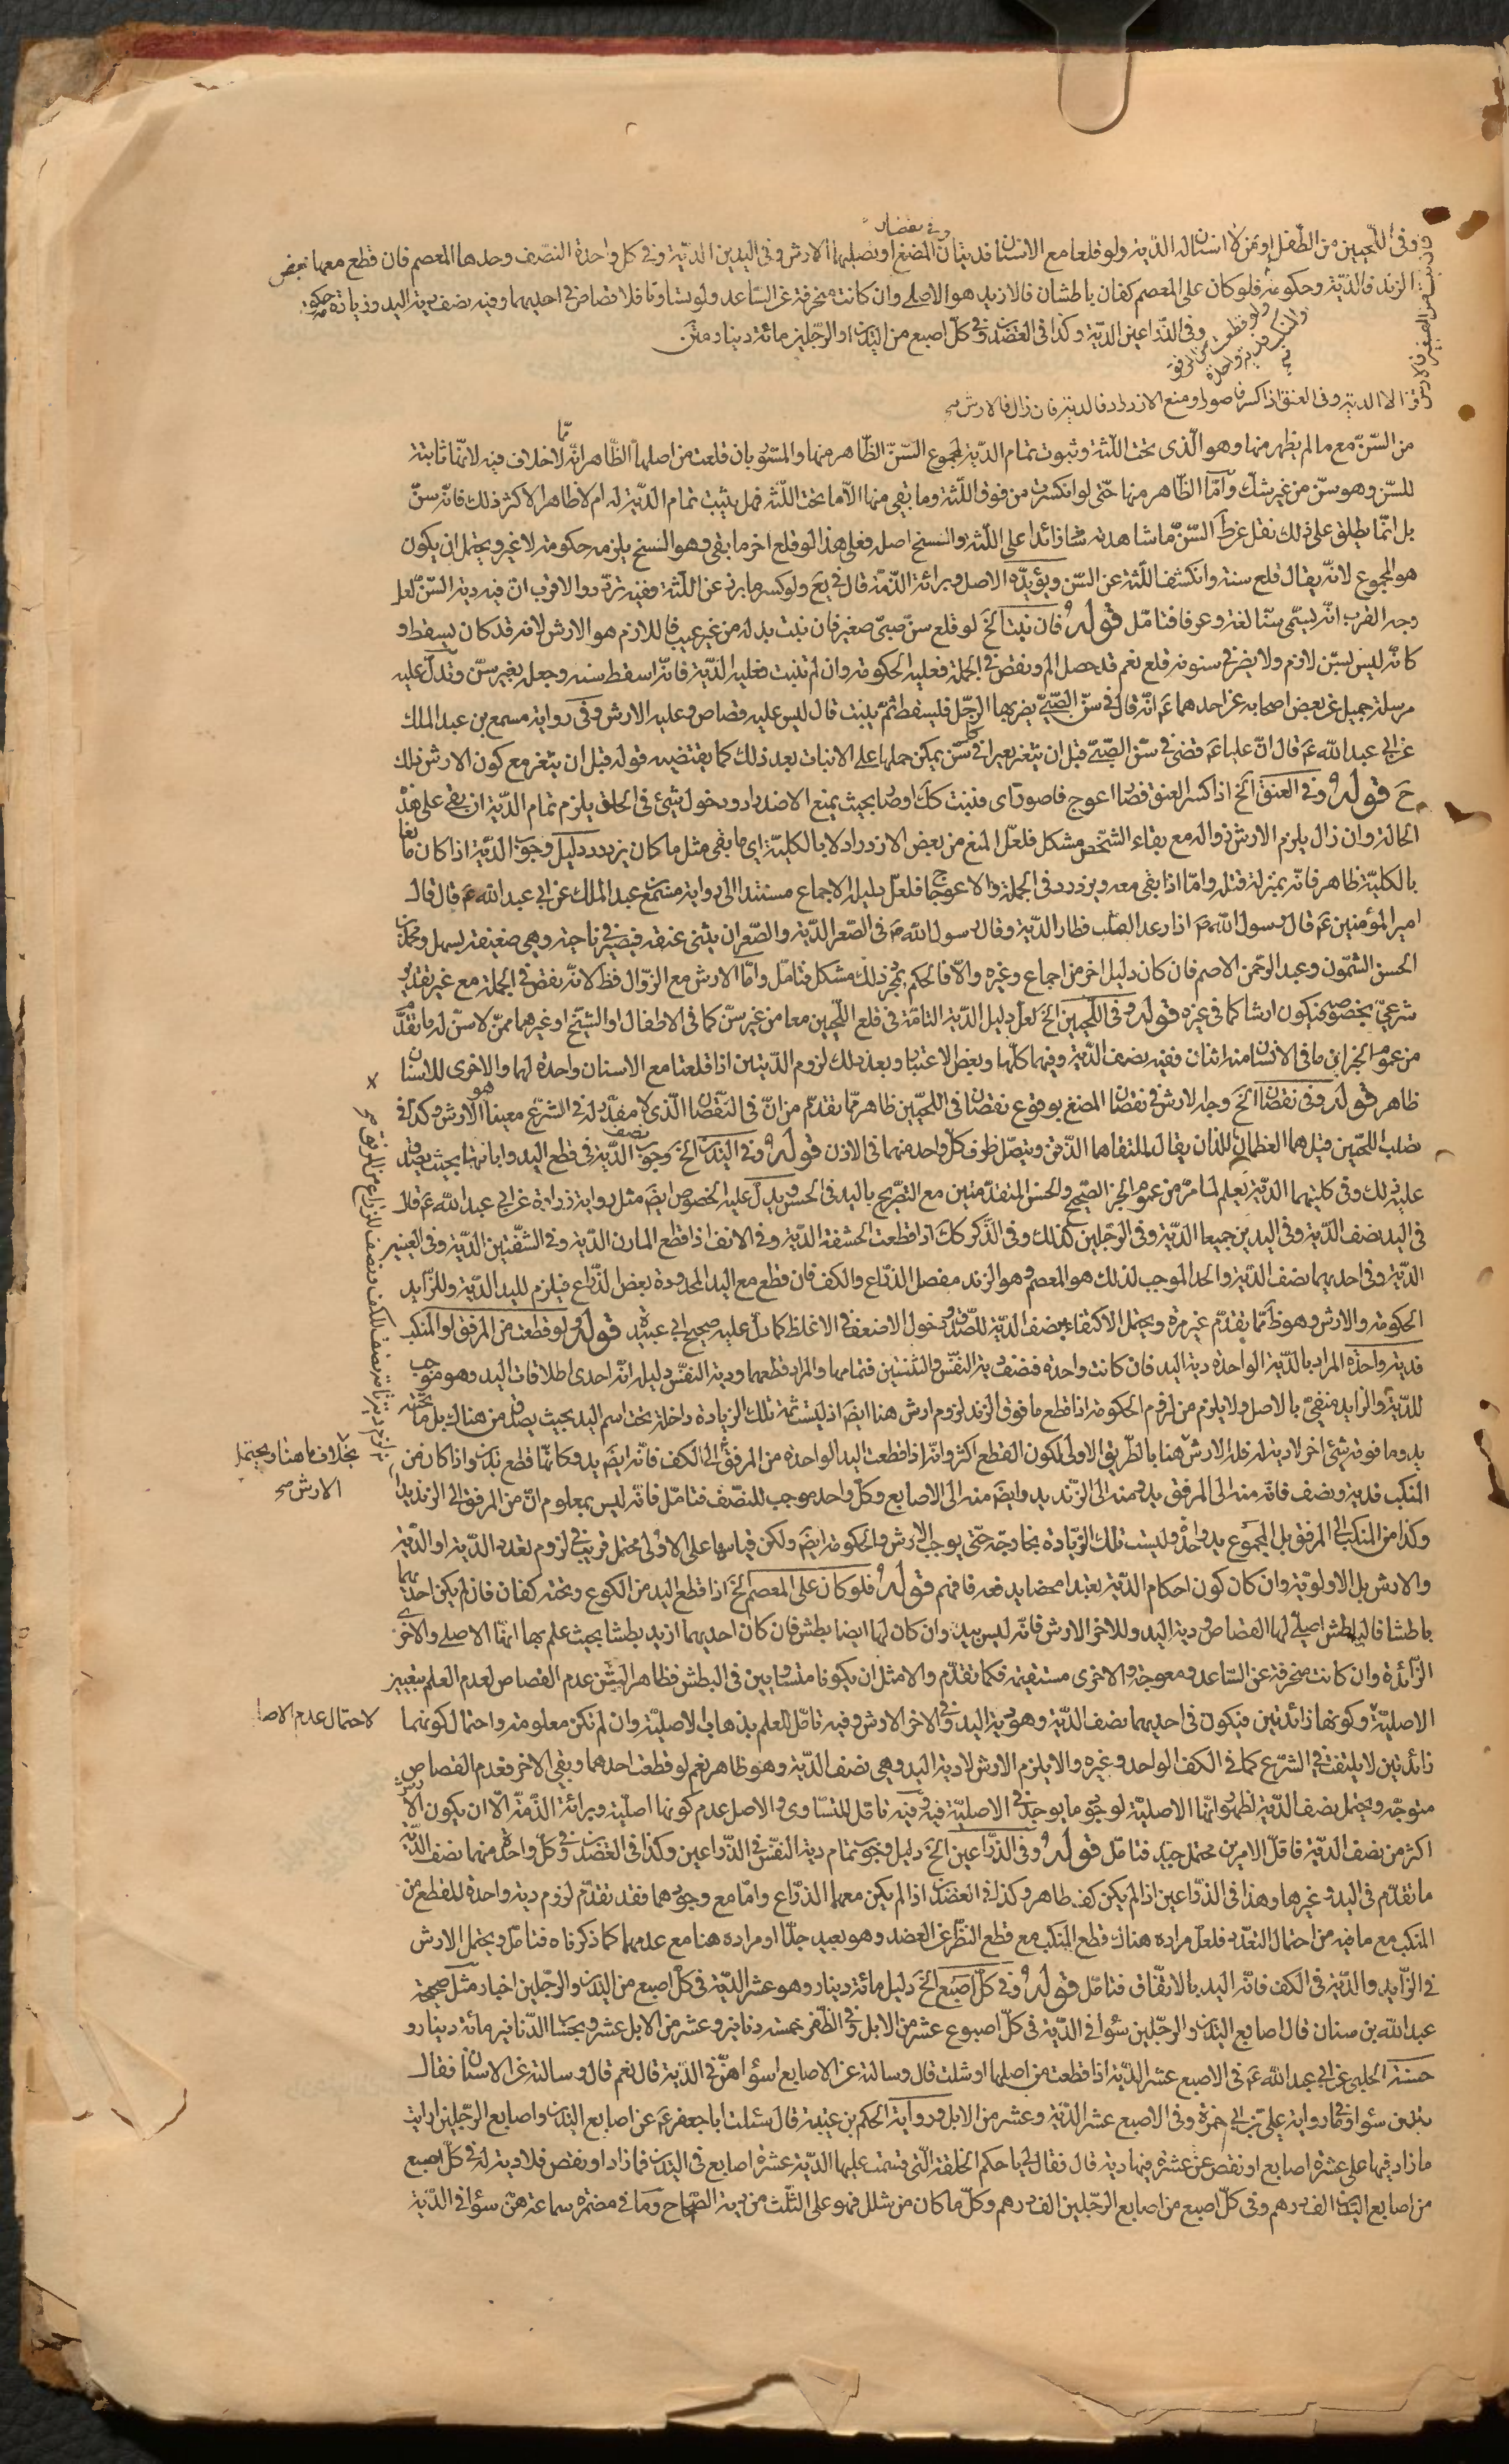 وفى اللحيين من الطفل او ممن لا اسنان له الدية ولو قلعا مع الاسنان فديتان وفى نقصان المضغ او تصلبهما الارش وفى اليدين الدية وفى كل واحدة النصف وحدها المعصم فان قطع معها بعض
الزند فالدية وحكومة فلو كان على المعصم كفان باطشان فالازيد هو الاصلى وان كانت منحرفة عن الساعد ولو تساويا فلا قصاص فى احديهما وفيه نصف دية اليد وزيادة حكومة
ولو قطعت من المرفق او المنكب فدية واحدة
وفى الذراعين الدية وكذا فى العضدين وفى كل اصبع من اليدين او الرجلين مائة دينار متن
الا الدية وفى العنق اذا كسر فاصور او منع الازدراد فالدية فان زال فالارش صح
من السن مع ما لم يظهر منها وهو الذى تحت اللثة وثبوت تمام الدية لمجموع السن الظاهر منها والمستور بان قلعت من اصلها الظاهر انه مما لا خلاف فيه لانها ثابتة
للسن وهو سن من غير شك واما الظاهر منها حتى لو انكسرت من فوق اللثة وما بقى منها الا ما تحت اللثة فهل يثبت تمام الدية له ام لا ظاهر الاكثر ذلك فانه سن
بل انما يطلق على ذلك نقل عن ط السن ما شاهدته زائدا على اللثة والسنخ اصله فعلى هذا لو قلع اخر ما بقى وهو السنخ يلزمه حكومة لا غير ويحتمل ان يكون
هو المجموع لانه يقال قلع سنة وانكشف اللثة عن السن ويؤيده الاصل وبرائة الذمة قال فى يع ولو كسر ما برز عن اللثة ففيه تردد والاقرب ان فيه دية السن لعل
وجه القرب انه يسمى سنا لغة وعرفا فتامل قوله فان نبت الخ لو قلع سن صبى صغير فان نبت بدله من غير عيب فاللازم هو الارش لانه قد كان يسقط و
كانه ليس بسن لازم ولا يضر فى سنونه قلع نعم قد حصل الم ونقص فى الجملة فعليه الحكومة وان لم تنبت فعليه الدية فانه اسقط سنه وجعل بغير سن وتدل عليه
مرسلة جميل عن بعض اصحابه عن احدهما ع انه قال فى سن الصبى يضربها الرجل فيسقط ثم ينبت قال ليس عليه قصاص وعليه الارش وفى رواية مسمع بن عبد الملك
عن ابى عبد الله ع قال ان عليا ع قضى فى سن الصبى قبل ان يثغر بعيرا فى كل سن يمكن حملها على الانبات بعد ذلك كما يقتضيه قوله قبل ان يثغر مع كون الارش ذلك
ح قوله وفى العنق الخ اذا كسر العنق فصار اعوج فاصور اى فثبت كك او صار بحيث يمنع الازدراد ودخول شئ فى الحلق يلزم تمام الدية ان بقى على هذه
الحالة وان زال يلزم الارش زواله مع بقاء الشخص مشكل فلعل المنع من بعض الازدراد لا بالكلية اى ما بقى مثل ما كان يزدرد دليل وجوب الدية اذا كان مانعا
بالكلية ظاهر فانه بمنزلة قتله واما اذا بقى معه ويزدرد فى الجملة والاعوجاج فلعل دليله الاجماع مستندا الى رواية مسمع بن عبد الملك عن ابى عبد الله ع قال قال
امير المؤمنين ع قال رسول الله ص اذا رعد القلب فطار الدية وقال رسول الله ص فى الصعر الدية والصعر ان يثنى عنقه فيصير فى ناحية وهى ضعيفة بسهل ومحمد بن
الحسن الشمون وعبد الرحمن الاصم فان كان دليل اخر من اجماع وغيره والا فالحكم بمجرد ذلك مشكل فتامل واما الارش مع الزوال فظ لانه نقص فى الجملة مع غير تقدير
شرعى بخصوصه فيكون ارشا كما فى غيره قوله وفى اللحيين الخ لعل دليل الدية التامة فى قلع اللحيين معا من غير سن كما فى الاطفال او الشيخ او غيرهما ممن لا سن له ما تقدم
من عموم الخبر اى ما فى الانسان منه اثنان ففيه نصف الدية وفيهما كلها وبعض الاعتبار وبعد ذلك لزوم الديتين اذا قلعتا مع الاسنان واحدة لهما والاخرى للاسنان
ظاهر قوله وفى نقصان الخ وجه الارش فى نقصان المضغ بوقوع نقصان فى اللحيين ظاهر مما تقدم من ان فى النقصان الذى لا مقدر له فى الشرع معينا هو الارش وكذا فى
تصلب اللحيين قيل هما العظمان اللذان يقال لملتقاهما الذقن ويتصل طرف كل واحد منهما فى الاذن قوله وفى اليدين الخ وجوب نصف الدية فى قطع اليد وابانتها بحيث يصدق
عليه ذلك وفى كلتيهما الدية يعلم لما مر من عموم الخبر الصحيح والحسن المتقدمتين مع التصريح باليد فى الحسن ويدل عليه الخصوص ايضا مثل رواية زرارة عن ابى عبد الله ع قال
فى اليد نصف الدية وفى اليدين جميعا الدية وفى الرجلين كذلك وفى الذكر كك اذا قطعت الحشفة الدية وفى الانف اذا قطع المارن الدية وفى الشفتين الدية وفى العينين
الدية وفى احديهما نصف الدية والحد الموجب لذلك هو المعصم وهو الزند مفصل الذراع والكف فان قطع مع اليد المحدودة بعض الذراع فيلزم لليد الدية وللزايد
الحكومة والارش وهو ظ مما تقدم غير مرة ويحتمل الاكتفاء بنصف الدية للصدق ودخول الاضعف فى الاغلظ كما دل عليه صحيح ابى عبيدة قوله ولو قطعت من المرفق او المنكب
فدية واحدة المراد بالدية الواحدة دية اليد فان كانت واحدة فنصف دية النفس والثنتين فتمامها والمراد قطعهما ودية النفس دليله انه احدى اطلاقات اليد وهو موجب
للدية والزايد منفى بالاصل ولا يلزم من لزوم الحكومة اذا قطع ما فوق الزند لزوم ارش هنا ايضا اذ ليست ثمة تلك الزيادة داخلة تحت اسم اليد بحيث يصدق من هناك بل ما تحته
يد وما فوقه شئ اخر لا دية له فله الارش هنا بالطريق الاولى لكون القطع اكثر وانه اذا قطعت اليد الواحدة من المرفق الى الكف فانه ايضا يد وكانما قطع يدين واذا كان من
المنكب فدية ونصف فانه منه الى المرفق يد ومنه الى الزند يد وايضا منه الى الاصابع وكل واحد موجب للنصف فتامل فانه ليس بمعلوم ان من المرفق الى الزند يدا
وكذا من المنكب الى المرفق بل المجموع يد واحدة وليست تلك الزيادة بخارجة حتى يوجب الارش والحكومة ايضا ولكن قياسها على الاولى محتمل قريب فى لزوم تعدد الدية او الدية
والارش بل الاولوية وان كان كون احكام الدية تعبدا محضا يدفعه فافهم قوله فلو كان على المعصم الخ اذا قطع اليد من الكوع وتحته كفان فان لم يكن احديهما
باطشا فالباطش اصيلى لها القصاص ودية اليد وللاخر الارش فانه ليس بيد وان كان لهما ايضا بطش فان كان احديهما ازيد بطشا بحيث علم بها انها الاصلى والاخرى
الزائدة وان كانت منحرفة عن الساعد ومعوجة والاخرى مستقيمة فكما تقدم والامثل ان يكونا متساويين فى البطش فظاهر المتن عدم القصاص لعدم العلم بتمييز
الاصلية وكونها زائدتين فيكون فى احديهما نصف الدية وهو دية اليد وفى الاخر الارش وفيه تامل للعلم بذهاب الاصلية وان لم تكن معلومة واحتمال كونهما
زائدتين لا يلتفت فى الشرع كما فى الكف الواحد وغيره والا يلزم الارش لا دية اليد وهى نصف الدية وهو ظاهر نعم لو قطعت احدهما وبقى الاخر فعدم القصاص
متوجه ويحتمل نصف الدية لظهور انها الاصلية لوجود ما يوجد فى الاصلية فيه وفيه تامل للتساوى والاصل عدم كونها اصلية وبرائة الذمة الا ان يكون الارش
اكثر من نصف الدية فاقل الامرين محتمل جيد فتامل قوله وفى الذراعين الخ دليل وجوب تمام دية النفس فى الذراعين وكذا فى العضدين وفى كل واحدة منهما نصف الدية
ما تقدم فى اليد وغيرها وهذا فى الذراعين اذا لم يكن كف ظاهر وكذا فى العضدين اذا لم يكن معهما الذراع واما مع وجودهما فقد تقدم لزوم دية واحدة للقطع من
المنكب مع ما فيه من احتمال التعدد فلعل مراده هناك قطع المنكب مع قطع النظر عن العضد وهو بعيد جدا او مراده هنا مع عدمهما كما ذكرناه فتامل ويحتمل الارش
فى الزايد والدية فى الكف فانه اليد بالاتفاق فتامل قوله وفى كل اصبع الخ دليل مائة دينار وهو عشر الدية فى كل اصبع من اليدين والرجلين اخبار مثل صحيحة
عبد الله بن سنان قال اصابع اليدين والرجلين سواء فى الدية فى كل اصبوع عشر من الابل وفى الظفر خمسة دنانير وعشر من الابل عشر وبحساب الدنانير مائة دينار و
حسنة الحلبى عن ابى عبد الله ع فى الاصبع عشر الدية اذا قطعت من اصلها او شلت قال وسالته عن الاصابع اسواء هن فى الدية قال نعم قال وسالته عن الاسنان فقال
ديتهن سواء وفى رواية على بن ابى حمزة وفى الاصبع عشر الدية وعشر من الابل ورواية الحكم بن عتيبة قال سئلت ابا جعفر ع عن اصابع اليدين واصابع الرجلين ارايت
ما زاد فيهما على عشرة اصابع او نقص عن عشرة فيها دية قال فقال لى يا حكم الخلقة التى قسمت عليها الدية عشرة اصابع فى اليدين فما زاد او نقص فلا دية له فى كل اصبع
من اصابع اليدين الف درهم وفى كل اصبع من اصابع الرجلين الف درهم وكل ما كان من شلل فهو على الثلث من دية الصحاح وما فى مضمرة سماعة هن سواء فى الدية
بخلاف ما هنا ويحتمل
الارش صح
لاحتمال عدم الاصا